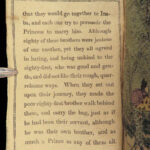 that they would go together to
and each one try to persuade the
Princess to marry him. Although
eighty of these brothers were jealous
of one another, yet they all agreed
in hating, and being unkind to the
eighty-first, who was good and gen-
tle, and did not like their rough, quar-
relsome ways. When they set out
upon their journey, they made the
poor eighty-first brother walk behind
them, and carry the bag, just as if
he had been their servant, although
he was their own brother, and as
much a Prince as any of them all.